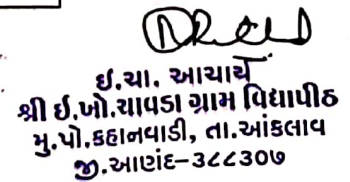 ઇ.ચા. આચાર્ય
શ્રી ઈ.ખો.ચાવડા ગ્રામ વિદ્યાપીઠ
મુ.પો.કહાનવાડી, તા.આંકલાવ
જી.આણંદ-૩૮૮૩૦૭